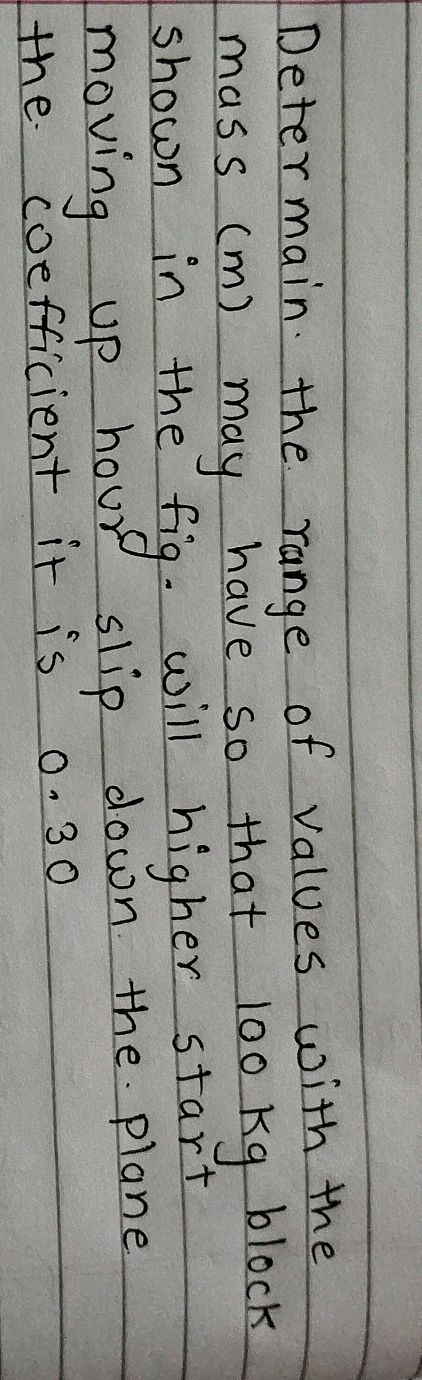 Determain. the range of values with the
mass (m) may have so that 100 kg block
shown in the fig. will higher start
moving up hour slip down the plane
the. coefficient it is 0.30